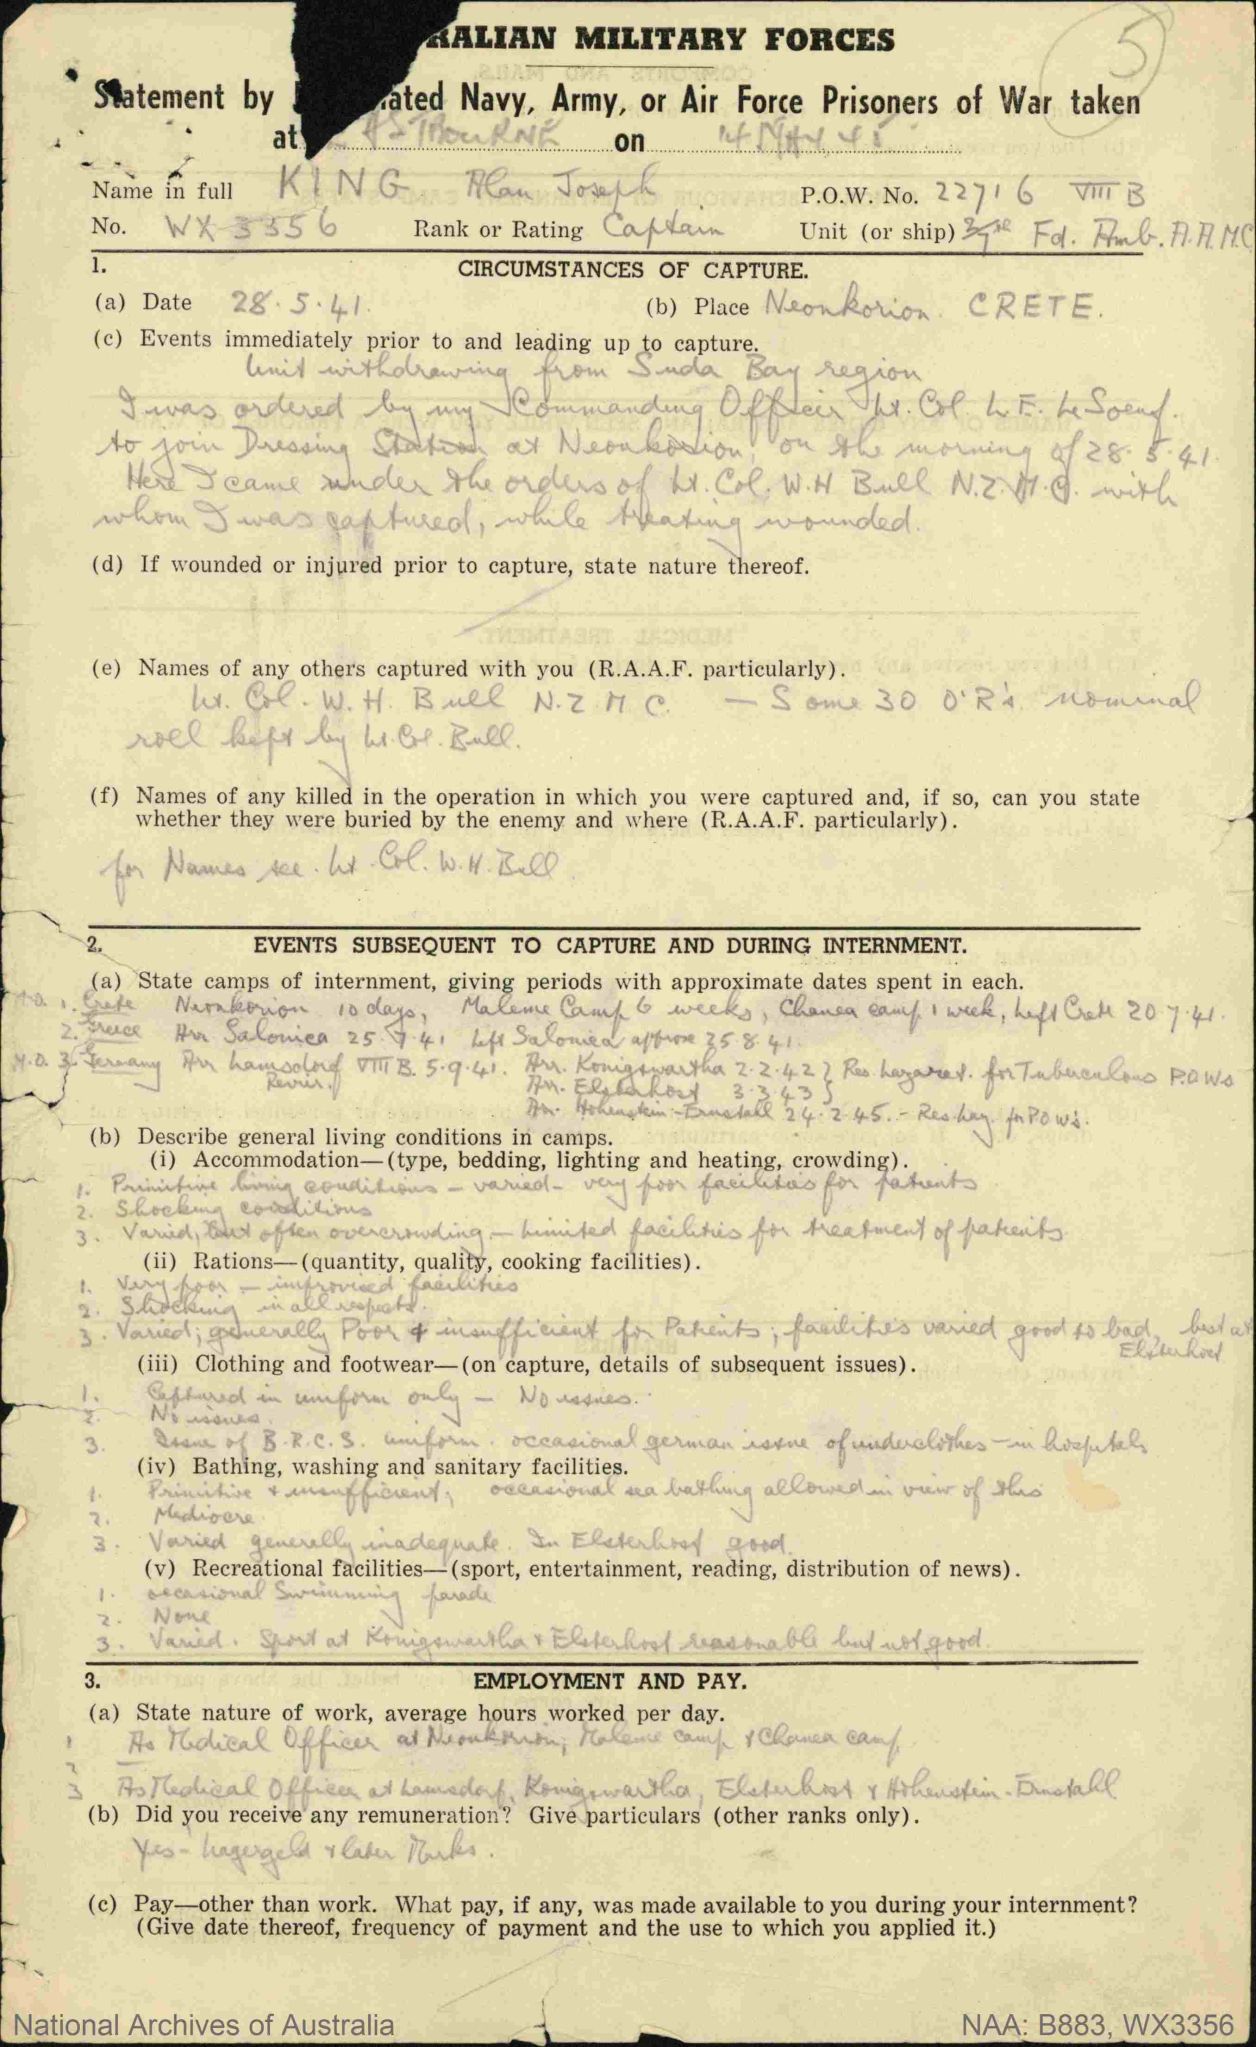 RALIAN MILITARY FORCES
Statement by ated Navy, Army, or Air Force Prisoners of War taken
at STBOURNE on 14 MAY 45
5
Name in full KING Alan Joseph P.O.W. No. 22716 VIII B
No. WX 3356 Rank or Rating Captain Unit (or ship) Fd. Amb. A.A.M.C
1. CIRCUMSTANCES OF CAPTURE.
(a) Date 28.5.41. (b) Place Neonkorion. CRETE.
(c) Events immediately prior to and leading up to capture.
Unit withdrawing from Suda Bay region
I was ordered by my Commanding Officer Lt. Col. L.E. Le Soeuf.
to join Dressing Station at Neonkorion, on the morning of 28.5.41.
Here I came under the orders of Lt. Col. W.H Bull N.Z.M.C. with
whom I was captured, while treating wounded.
(d) If wounded or injured prior to capture, state nature thereof.
(e) Names of any others captured with you (R.A.A.F. particularly).
Lt. Col. W. H. Bull N.Z.M.C. — Some 30 O'R's. nominal
roll kept by Lt. Col. Bull.
(f) Names of any killed in the operation in which you were captured and, if so, can you state
whether they were buried by the enemy and where (R.A.A.F. particularly).
for Names see. Lt. Col. W.H. Bull.
2. EVENTS SUBSEQUENT TO CAPTURE AND DURING INTERNMENT.
(a) State camps of internment, giving periods with approximate dates spent in each.
M.O. 1. Crete Neonkorion 10 days, Maleme Camp 6 weeks, Chanea camp 1 week, Left Crete 20.7.41.
2. Greece Arr Salonica 25.7.41 Left Salonica approx 25.8.41.
M.O. 3. Germany Arr Lamsdorf VIII B. 5.9.41. Arr. Konigswartha 2.2.42 } Res. Lazaret. for Tuberculous P.O.Ws
Revier. Arr. Elsterhost 3.3.43 }
Arr. Hohenstein-Ernstahl 24.2.45. - Res Laz. for P.O.W's.
(b) Describe general living conditions in camps.
(i) Accommodation—(type, bedding, lighting and heating, crowding).
1. Primitive living conditions - varied - very poor facilities for patients
2. Shocking conditions
3. Varied, but often overcrowding - Limited facilities for treatment of patients.
(ii) Rations—(quantity, quality, cooking facilities).
1. Very poor — improvised facilities
2. Shocking in all respects.
3. Varied; generally Poor & insufficient for Patients; facilities varied good to bad, best at
Elsterhost
(iii) Clothing and footwear—(on capture, details of subsequent issues).
1. Captured in uniform only — No issues.
2. No issues.
3. Issue of B.R.C.S. uniform. occasional german issue of underclothes - in hospitals
(iv) Bathing, washing and sanitary facilities.
1. Primitive & insufficient; occasional sea bathing allowed in view of this
2. Mediocre.
3. Varied generally inadequate. In Elsterhost good.
(v) Recreational facilities—(sport, entertainment, reading, distribution of news).
1. occasional Swimming parade
2. None
3. Varied. Sport at Konigswartha & Elsterhost reasonable but not good.
3. EMPLOYMENT AND PAY.
(a) State nature of work, average hours worked per day.
1 As Medical Officer at Neonkorion, Maleme camp & Chanea camp
2 —
3 As Medical Officer at Lamsdorf, Konigswartha, Elsterhost & Hohenstein-Ernstahl
(b) Did you receive any remuneration? Give particulars (other ranks only).
Yes - Lagergeld & later Marks.
(c) Pay—other than work. What pay, if any, was made available to you during your internment?
(Give date thereof, frequency of payment and the use to which you applied it.)
National Archives of Australia NAA: B883, WX3356